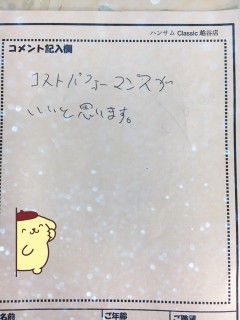 ハンサム Classic 越谷店
コメント記入欄
コストパフォーマンスが
いいと思います。
名前
ご年齢
ご職業